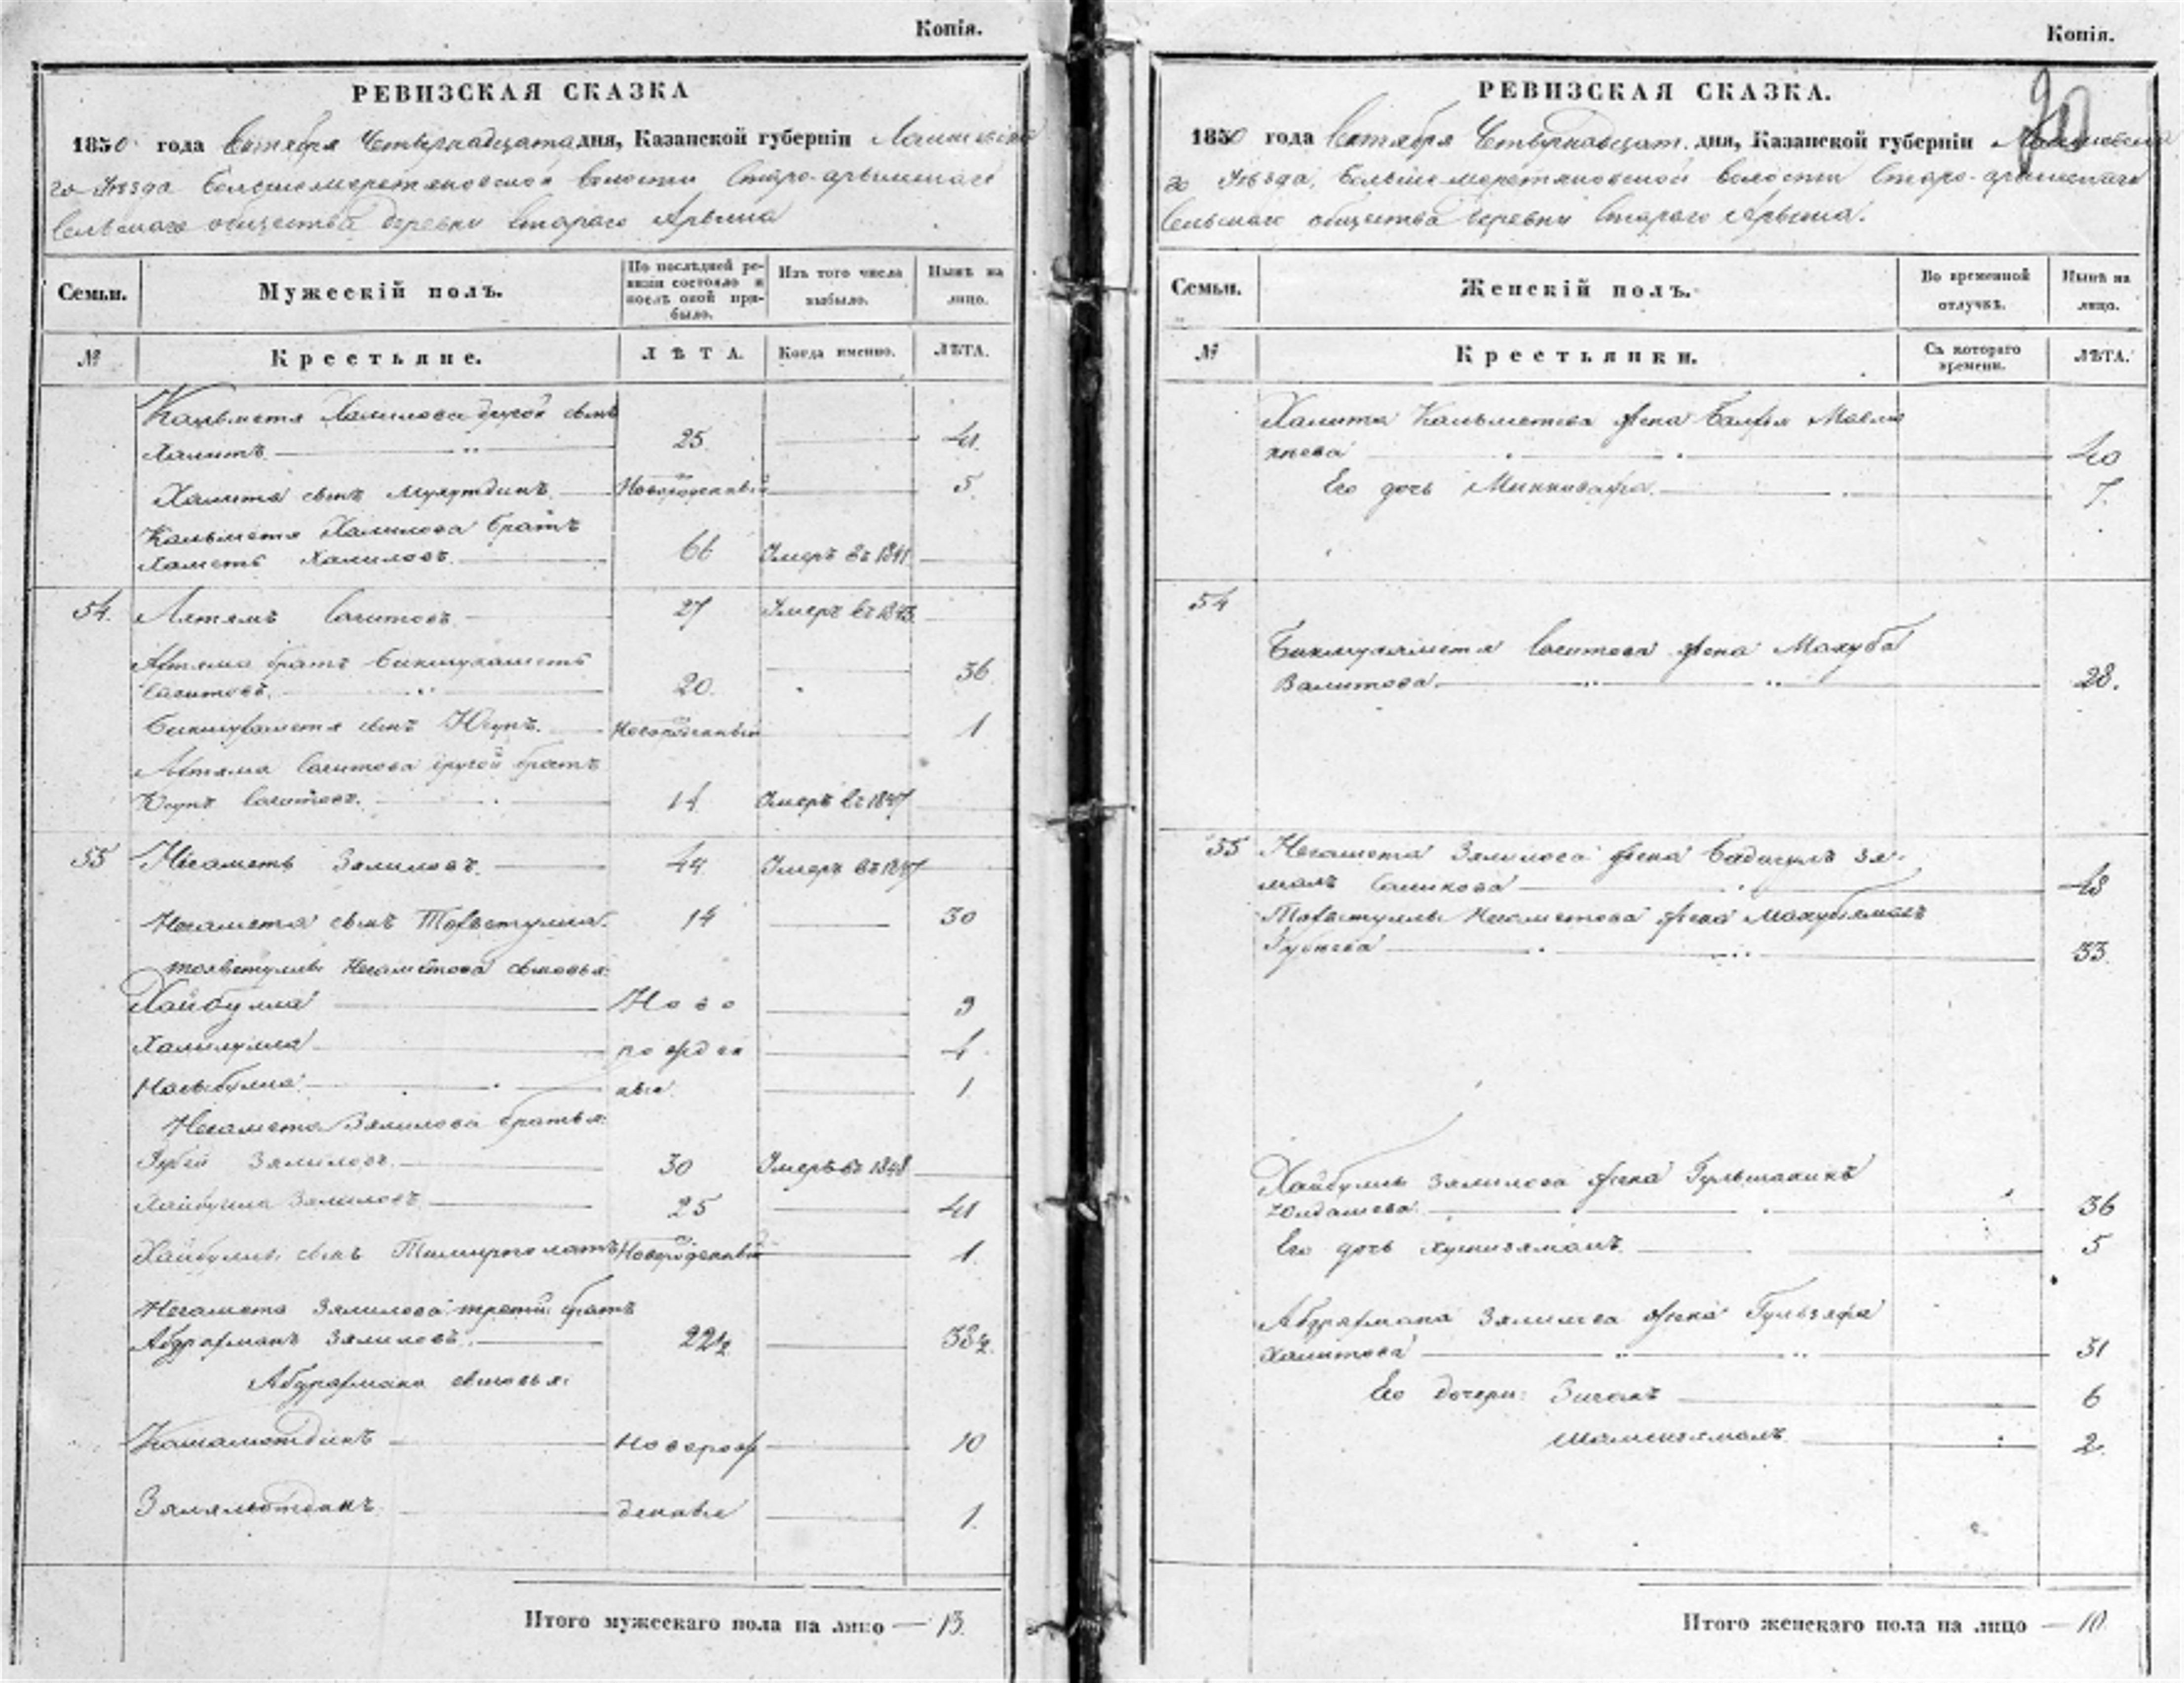 Копія.
РЕВИЗСКАЯ СКАЗКА
1850 года Октября Четырнадцата дня, Казанской губерніи Лаишевска
го Уѣзда Большемеретяковской Волости Старо-арышскаго
Сельскаго общества деревни Стараго Арыша
Семьи.
Мужескій полъ.
По послѣдней ревизіи состояло и послѣ оной прибыло.
Изъ того числа выбыло.
Нынѣ на лицо.
№
Крестьяне.
ЛѢТА.
Когда именно.
ЛѢТА.
Кальметя Халилова другой сынъ
Халитъ 25 41.
Халита сынъ Новорожденный 5.
Кальметя Халилова братъ
Хаметъ Халиловъ. 66 Умеръ въ 1841
54. Сагитовъ 27 Умеръ въ 1843
братъ Бикмухаметъ
Сагитовъ. 20. 36
Бикмухаметя сынъ Юсупъ. Новорожденный 1
Сагитова другой братъ
Юсупъ Сагитовъ. 14. Умеръ въ 1847
55 Нигаметъ Зялиловъ. 44 Умеръ въ 1847
Негамета сынъ 14 30
Негаметова сыновья:
Хайбулла Ново 9
Халилулла рожден 4
Насыбулла ные. 1.
Негамета Зялилова братья:
Губей Зялиловъ. 30 Умеръ въ 1848
Хайбулла Зялиловъ 25 41
Хайбуллы сынъ Тимирполатъ Новорожденный 1.
Негамета Зялилова третій братъ
Абдрахманъ Зялиловъ. 22½ 38½.
Абдрахмана сыновья:
Камаметдинъ новорож 10
Зяляльотдинъ денные 1.
Итого мужескаго пола на лицо — 13.
Копія.
РЕВИЗСКАЯ СКАЗКА.
1850 года Октября Четырнадцат. дня, Казанской губерніи Лаишевска
го Уѣзда, Большемеретяковской Волости Старо-арышскаго
Сельскаго общества деревни Стараго Арыша.
Семьи.
Женскій полъ.
Во временной отлучкѣ.
Нынѣ на лицо.
№
Крестьянки.
Съ котораго времени.
ЛѢТА.
Халита Кальметева жена
40
Его дочь Миннивафа. 7.
54
Бикмухаметя Сагитова жена Махуба
Валитова. 28.
55 Негамета Зялилова жена Бадигулъ зя-
малъ Саликова 48
Негаметова жена
Губеева 33.
Хайбуллы Зялилова жена
Юлдашева. 36
Его дочь 5
Абдрахмана Зялилова жена Гульзяфа
Халитова 31
Его дочери: 6
Шамсизямалъ 2.
Итого женскаго пола на лицо — 10.